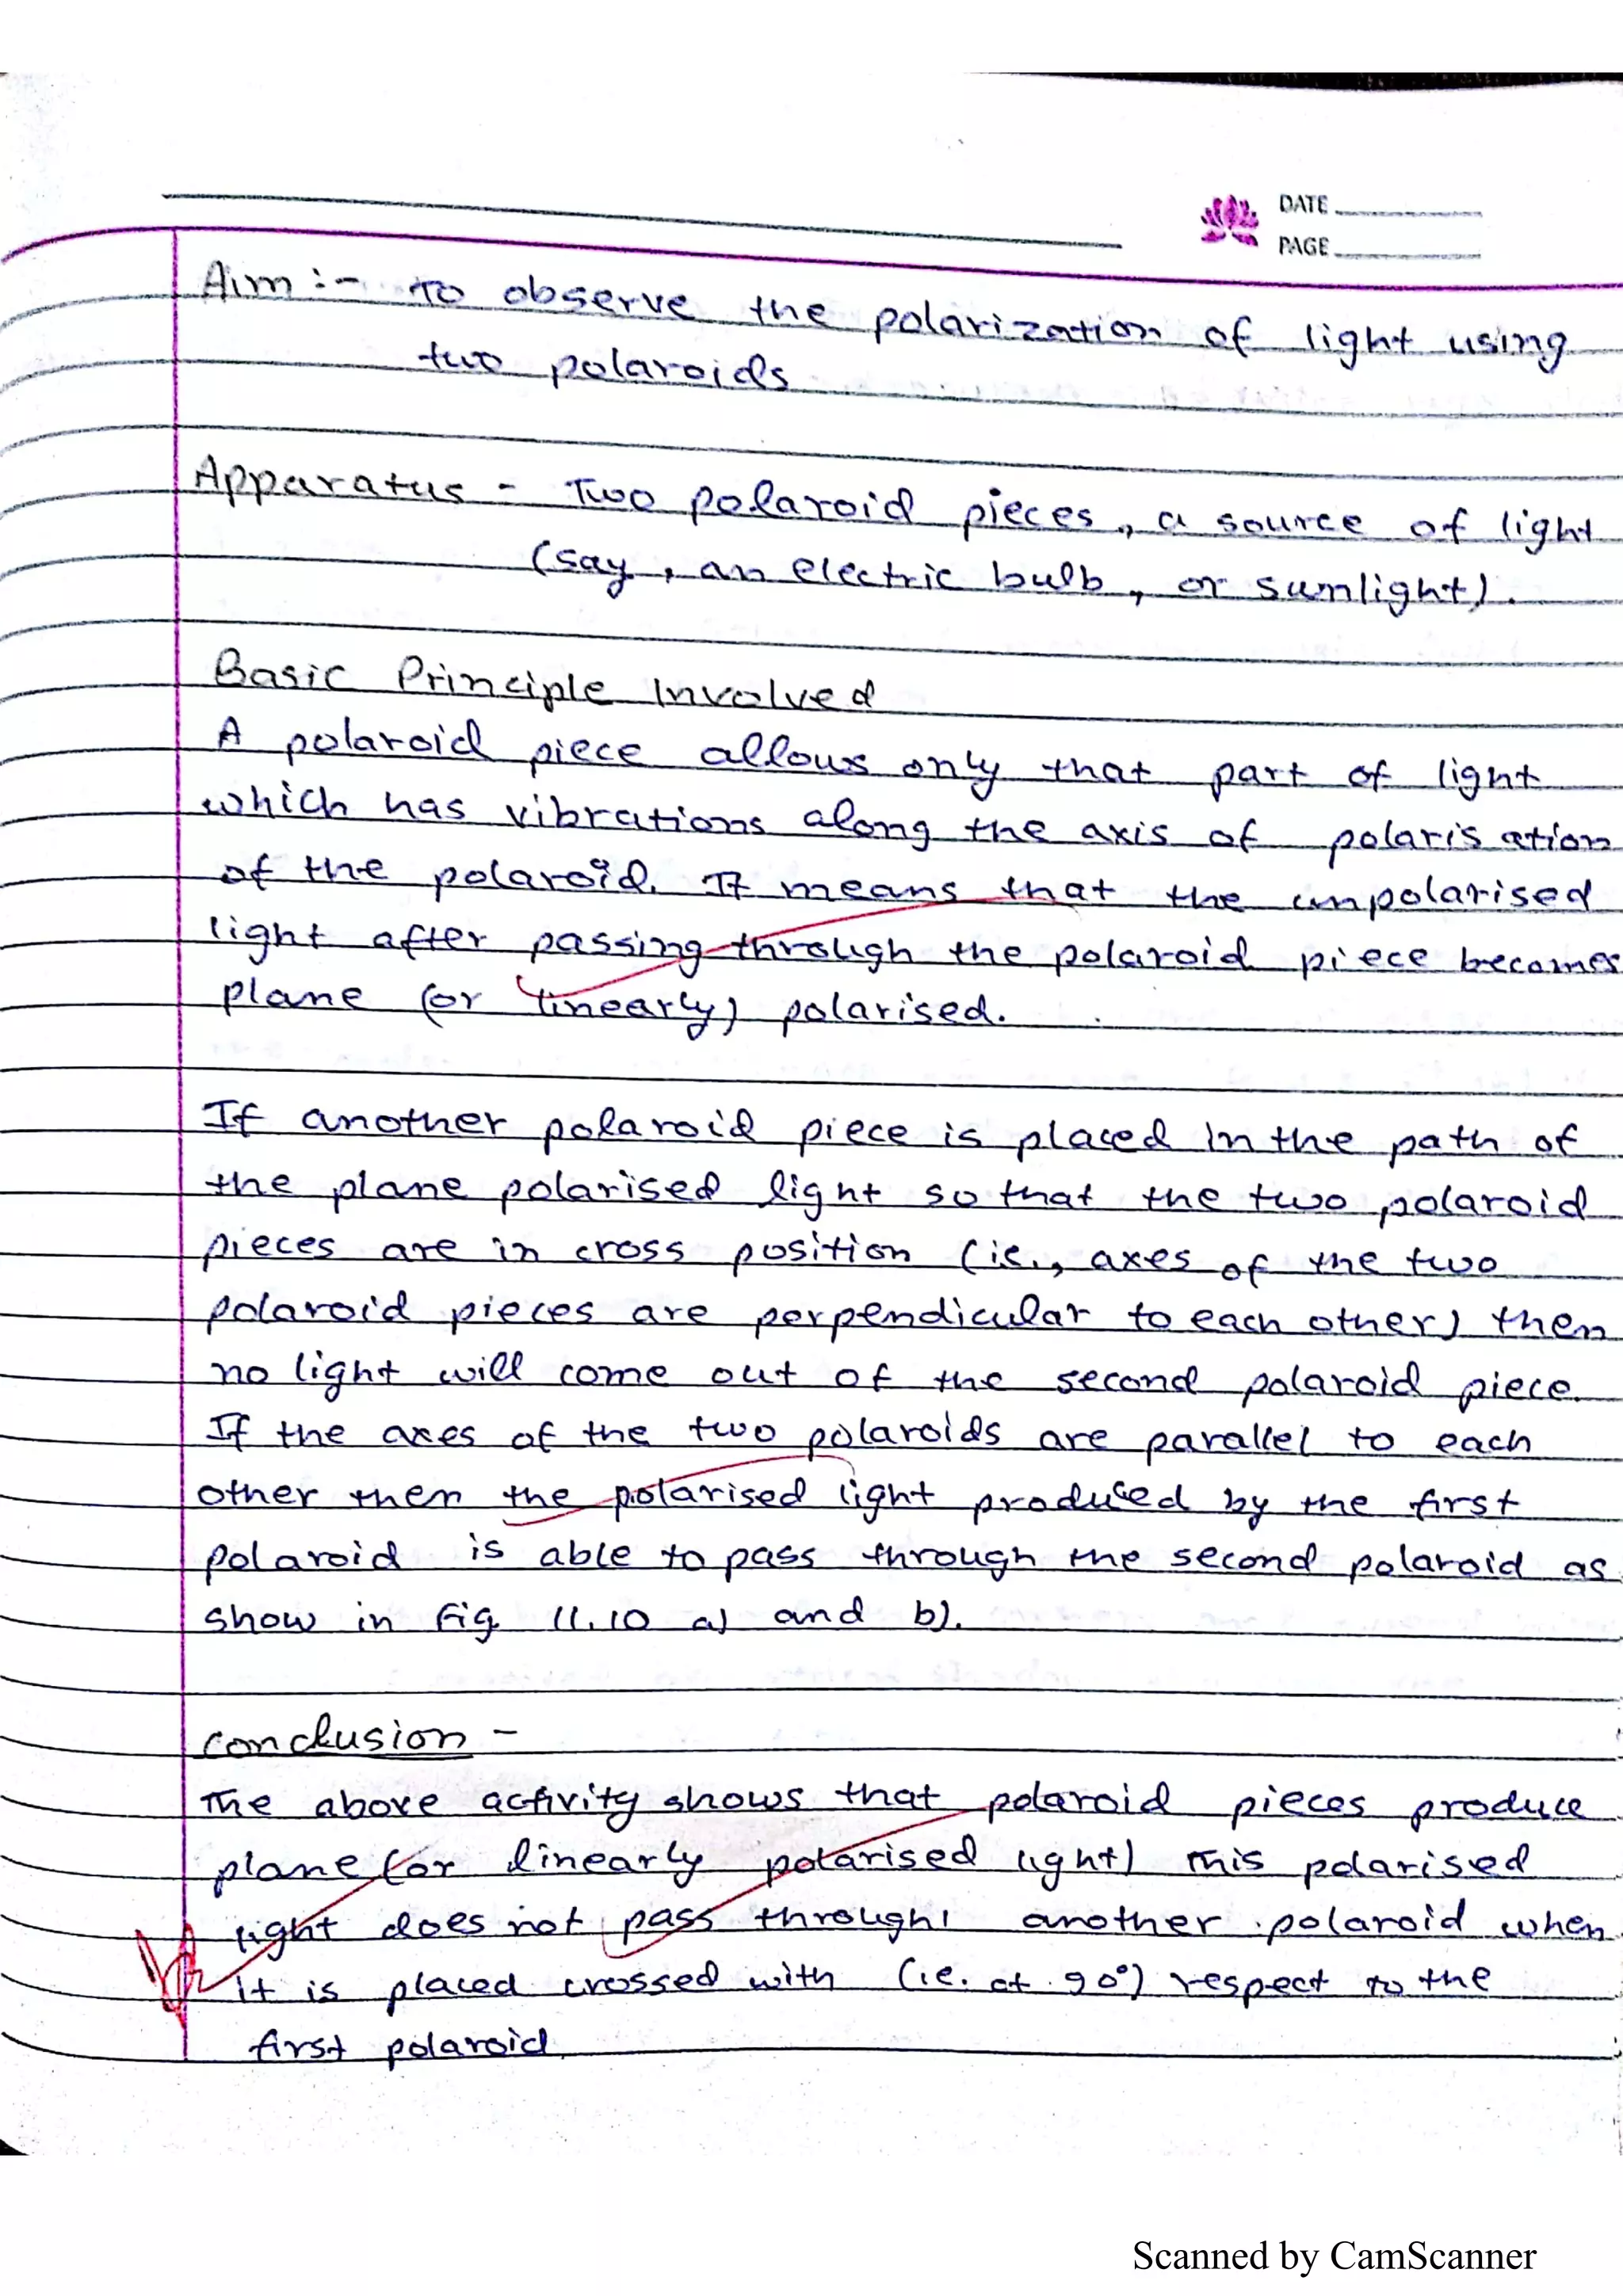 DATE
PAGE
Aim :- To observe the polarization of light using
two polaroids
Apparatus - Two polaroid pieces, a source of light
(say, an electric bulb, or sunlight).
Basic Principle Involved
A polaroid piece allows only that part of light
which has vibrations along the axis of polarisation
of the polaroid. It means that the unpolarised
light after passing through the polaroid piece becomes
plane (or linearly) polarised.
If another polaroid piece is placed in the path of
the plane polarised light so that the two polaroid
pieces are in cross position (ie., axes of the two
polaroid pieces are perpendicular to each other) then
no light will come out of the second polaroid piece.
If the axes of the two polaroids are parallel to each
other then the polarised light produced by the first
polaroid is able to pass through the second polaroid as
show in Fig 11.10 a) and b).
Conclusion -
The above activity shows that polaroid pieces produce
plane (or linearly polarised light) This polarised
light does not pass through another polaroid when
it is placed crossed with (ie. at 90°) respect to the
first polaroid.
Scanned by CamScanner